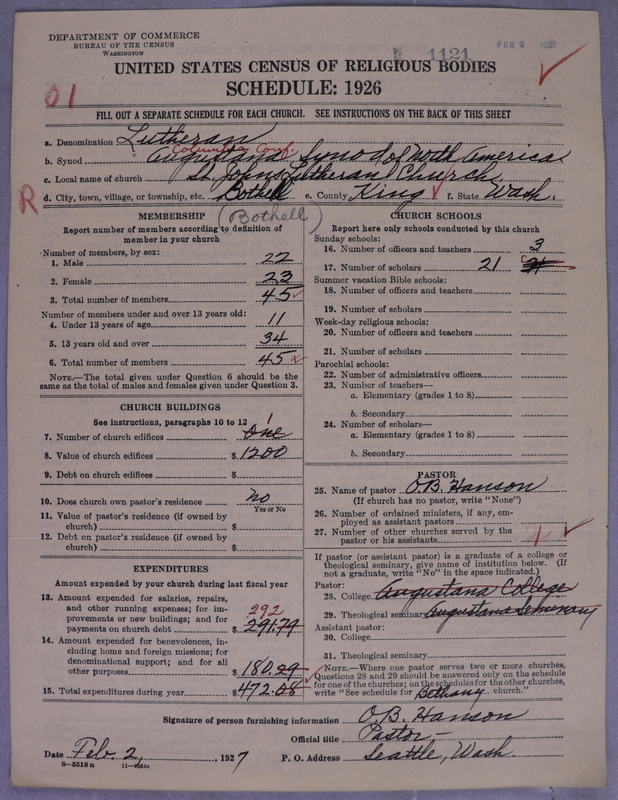 DEPARTMENT OF COMMERCE
BUREAU OF THE CENSUS
WASHINGTON
1121
FEB 9
UNITED STATES CENSUS OF RELIGIOUS BODIES
SCHEDULE: 1926
01
FILL OUT A SEPARATE SCHEDULE FOR EACH CHURCH. SEE INSTRUCTIONS ON THE BACK OF THIS SHEET
a. Denomination Lutheran
Columbia Conf.
b. Synod Augustana Synod of North America
c. Local name of church St. Johns Lutheran Church
R
d. City, town, village, or township, etc. Bothell e. County King f. State Wash.
(Bothell)
MEMBERSHIP
Report number of members according to definition of
member in your church
Number of members, by sex:
1. Male 22
2. Female 23
3. Total number of members 45
Number of members under and over 13 years old:
4. Under 13 years of age 11
5. 13 years old and over 34
6. Total number of members 45
NOTE.—The total given under Question 6 should be the
same as the total of males and females given under Question 3.
CHURCH BUILDINGS
See instructions, paragraphs 10 to 12
7. Number of church edifices One 1
8. Value of church edifices $ 1200
9. Debt on church edifices $
10. Does church own pastor's residence No
Yes or No
11. Value of pastor's residence (if owned by
church) $
12. Debt on pastor's residence (if owned by
church) $
EXPENDITURES
Amount expended by your church during last fiscal year
13. Amount expended for salaries, repairs,
and other running expenses; for im-
provements or new buildings; and for
payments on church debt $ 291.79
292
14. Amount expended for benevolences, in-
cluding home and foreign missions; for
denominational support; and for all
other purposes $ 180.29
15. Total expenditures during year $ 472.08
CHURCH SCHOOLS
Report here only schools conducted by this church
Sunday schools:
16. Number of officers and teachers 3
17. Number of scholars 21
Summer vacation Bible schools:
18. Number of officers and teachers
19. Number of scholars
Week-day religious schools:
20. Number of officers and teachers
21. Number of scholars
Parochial schools:
22. Number of administrative officers
23. Number of teachers—
a. Elementary (grades 1 to 8)
b. Secondary
24. Number of scholars—
a. Elementary (grades 1 to 8)
b. Secondary
PASTOR
25. Name of pastor O.B. Hanson
(If church has no pastor, write "None")
26. Number of ordained ministers, if any, em-
ployed as assistant pastors
27. Number of other churches served by the
pastor or his assistants 1
If pastor (or assistant pastor) is a graduate of a college or
theological seminary, give name of institution below. (If
not a graduate, write "No" in the space indicated.)
Pastor:
28. College Augustana College
29. Theological seminary Augustana Seminary
Assistant pastor:
30. College
31. Theological seminary
NOTE.—Where one pastor serves two or more churches,
Questions 28 and 29 should be answered only on the schedule
for one of the churches; on the schedules for the other churches,
write "See schedule for Bethany church."
Signature of person furnishing information O.B. Hanson
Official title Pastor
Date Feb. 2, 1927 P. O. Address Seattle, Wash.
8—5518 a